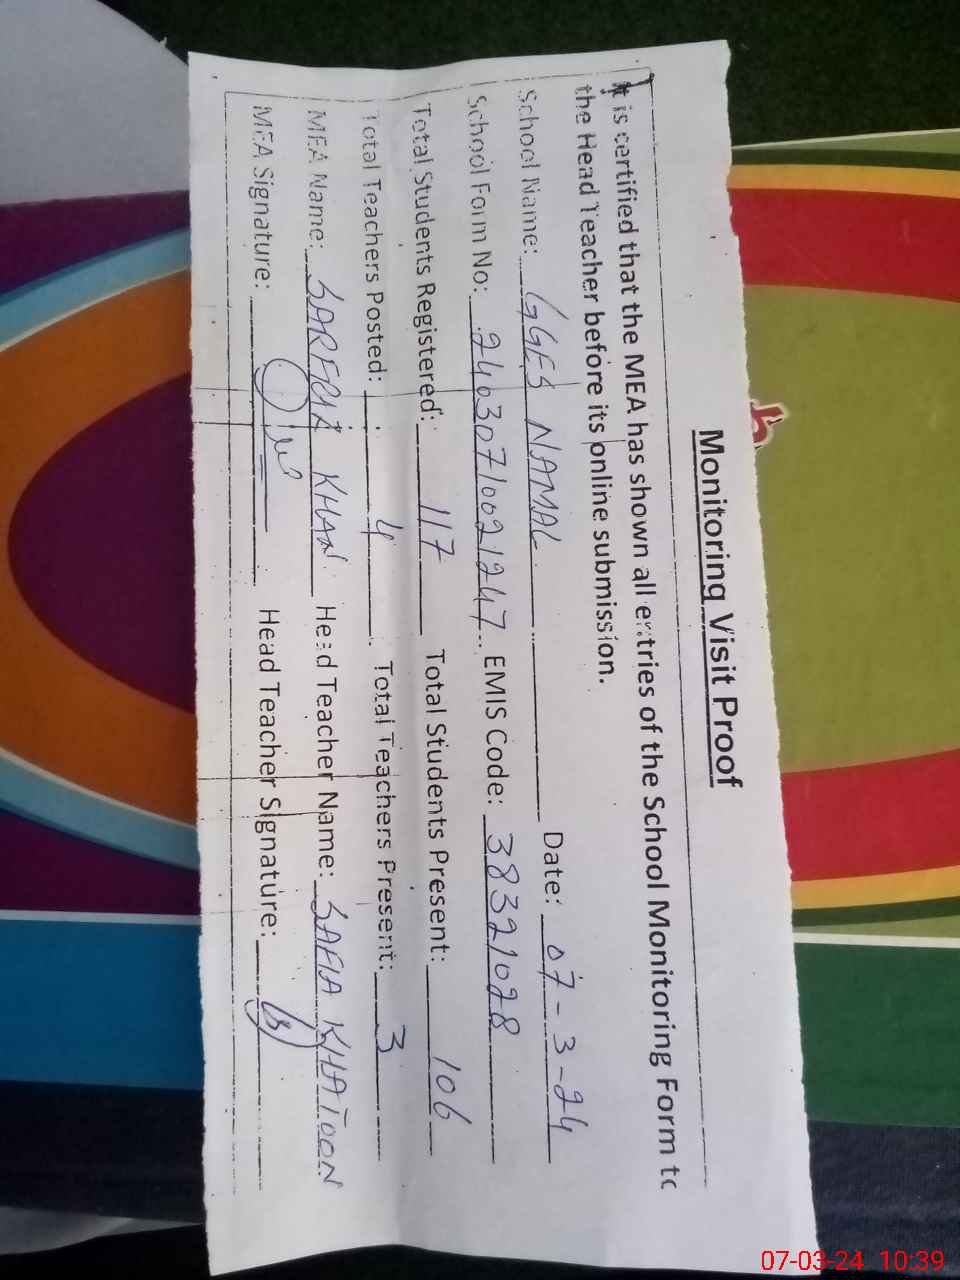 Monitoring Visit Proof
It is certified that the MEA has shown all entries of the School Monitoring Form to
the Head Teacher before its online submission.
School Name: GGES NAMAL Date: 07-3-24
School Form No: 24030710021247 EMIS Code: 38321028
Total Students Registered: 117 Total Students Present: 106
Total Teachers Posted: 4 Total Teachers Present: 3
MEA Name: SARFRAZ KHAN Head Teacher Name: SAFIA KHATOON
MEA Signature: Head Teacher Signature:
07-03-24 10:39